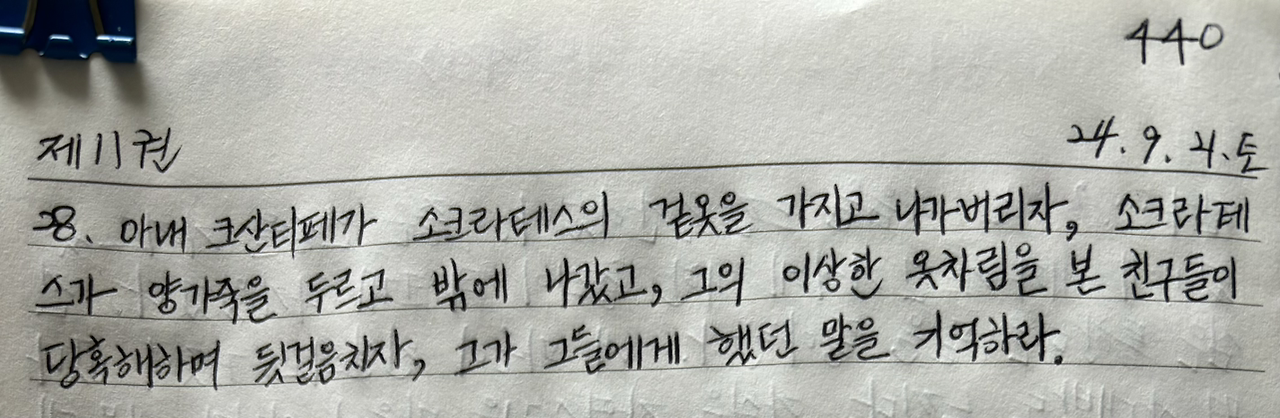 440
제11권
24. 9. 21. 토
28. 아내 크산티페가 소크라테스의 겉옷을 가지고 나가버리자, 소크라테
스가 양가죽을 두르고 밖에 나갔고, 그의 이상한 옷차림을 본 친구들이
당혹해하며 뒷걸음치자, 그가 그들에게 했던 말을 기억하라.